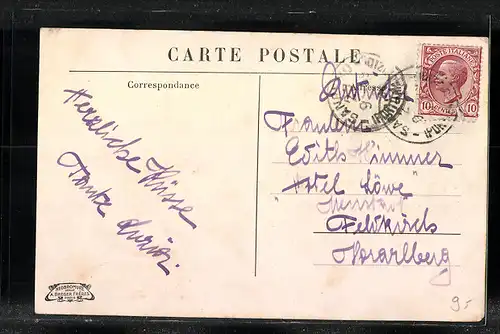 CARTE POSTALE
Correspondance
Herzliche Küsse
Tante
POSTE ITALIANE
10 CENT. 10
An
Fräulein
Edith Himmer
"Hotel Löwe"
Feldkirch
Vorarlberg
A. BERGER FRÈRES
9.-